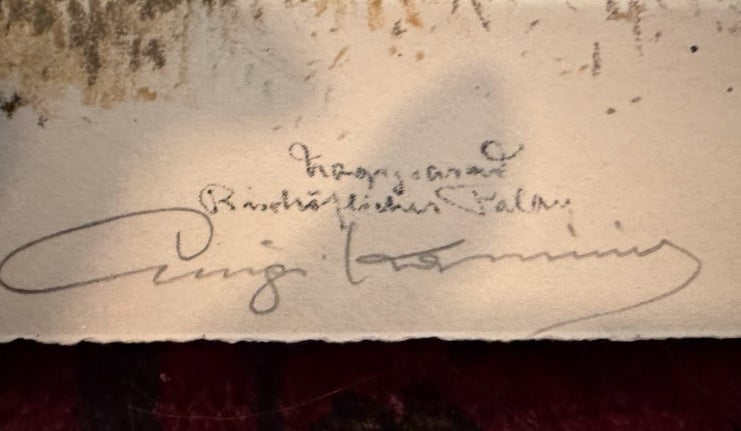 Nagyvárad
Bischöflicher Palais
Luigi Kasimir